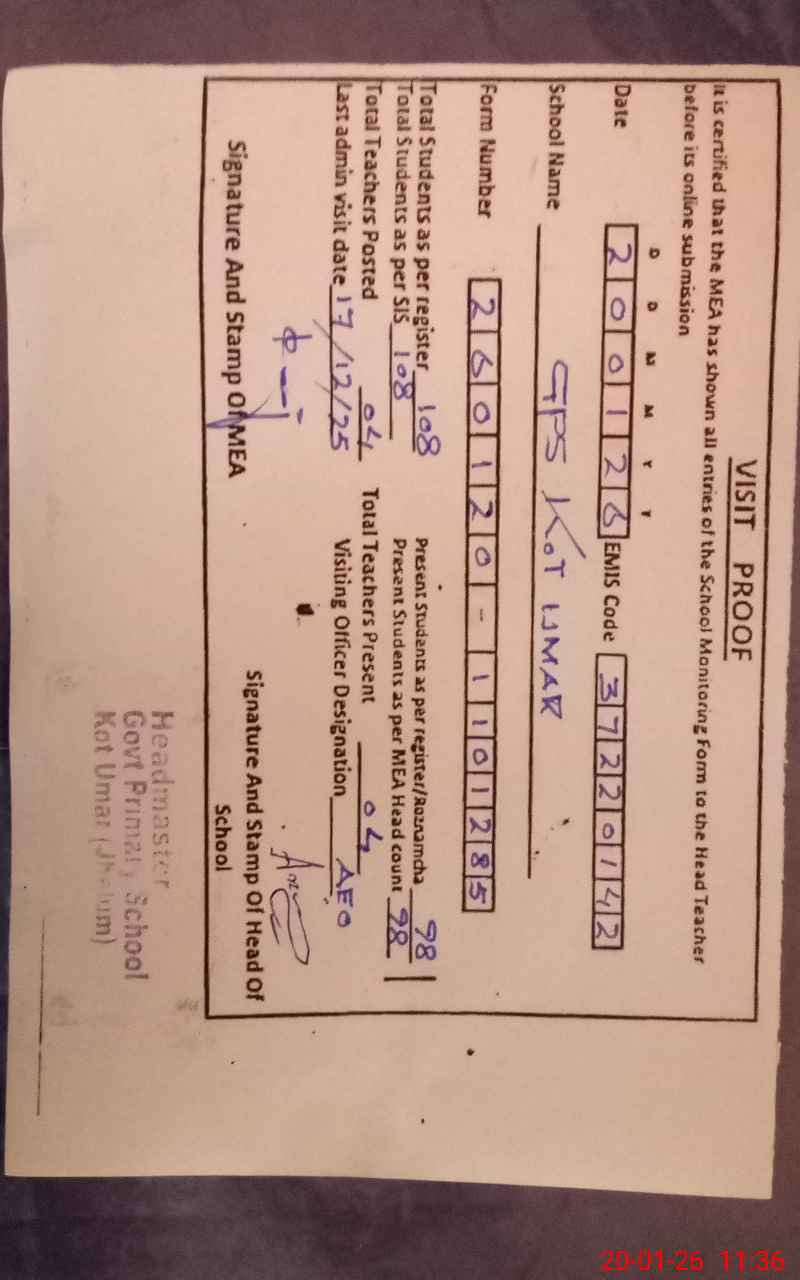 VISIT PROOF
It is certified that the MEA has shown all entries of the School Monitoring Form to the Head Teacher
before its online submission
D D M M Y Y
Date 2 0 0 1 2 6 EMIS Code 3 7 2 2 0 1 4 2
School Name GPS KOT UMAR
Form Number 2 6 0 1 2 0 - 1 1 0 1 2 8 5
Total Students as per register 108 Present Students as per register/Roznamcha 98
Total Students as per SIS 108 Present Students as per MEA Head count 98
Total Teachers Posted 04 Total Teachers Present 04
Last admin visit date 17/12/25 Visiting Officer Designation AEO
Signature And Stamp Of MEA Signature And Stamp Of Head Of
School
Headmaster
Govt Primary School
Kot Umar (Jhelum)
20-01-26 11:36